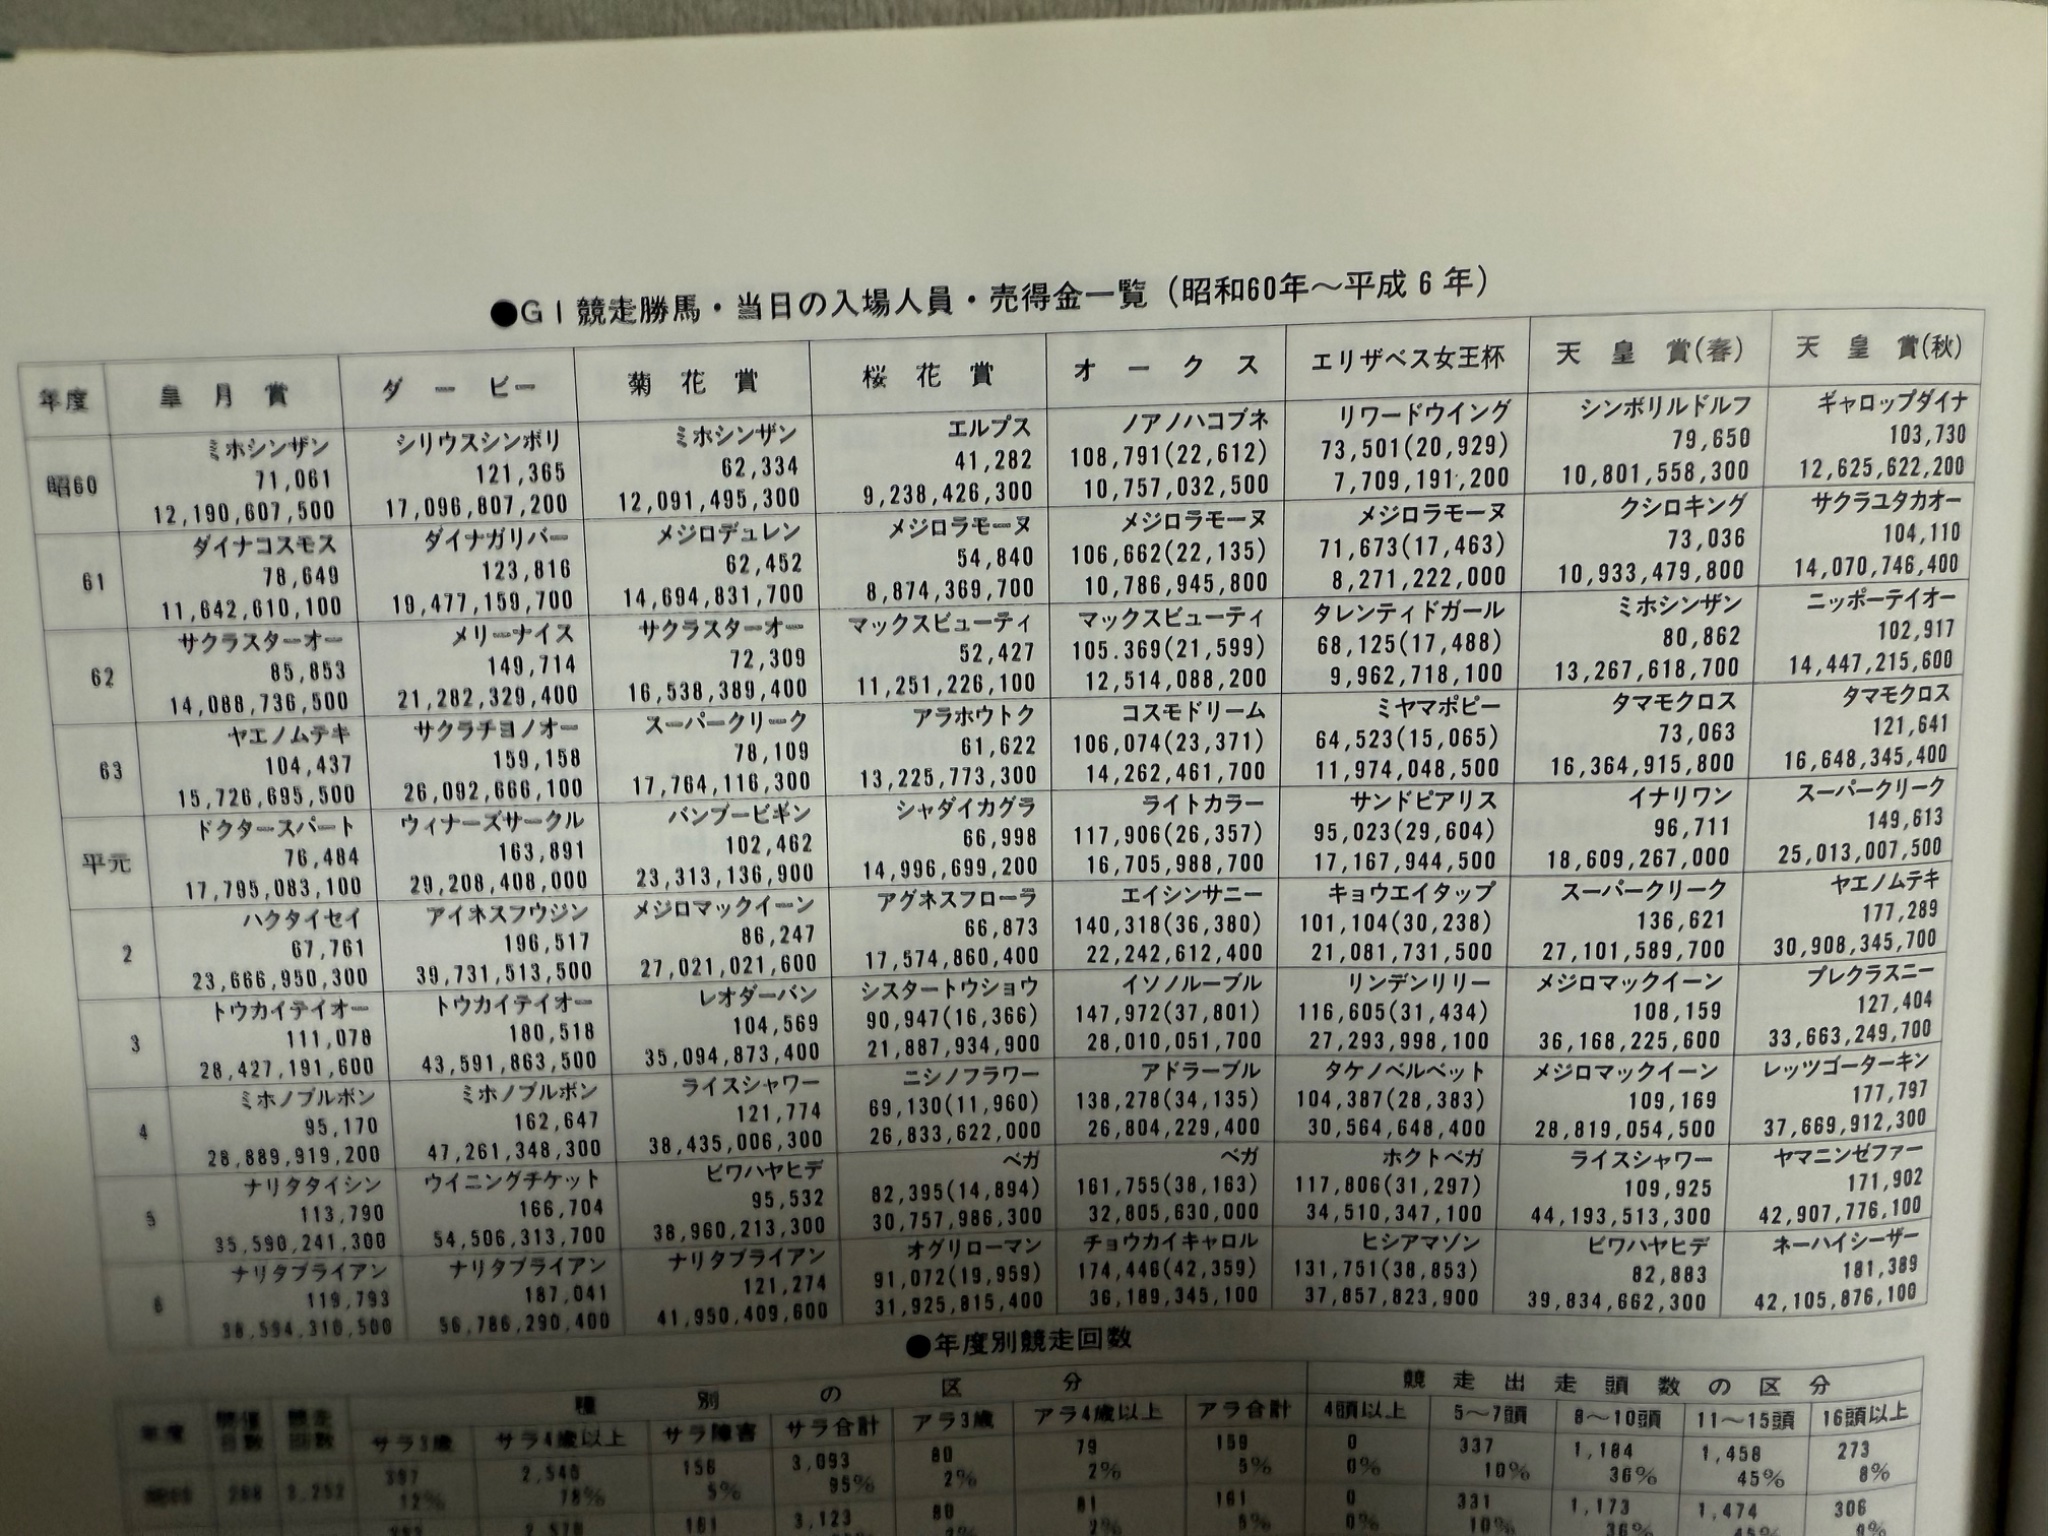 ●GⅠ競走勝馬・当日の入場人員・売得金一覧（昭和60年～平成6年）
年度 皐月賞 ダービー 菊花賞 桜花賞 オークス エリザベス女王杯 天皇賞(春) 天皇賞(秋)
ミホシンザン シリウスシンボリ ミホシンザン エルプス ノアノハコブネ リワードウイング シンボリルドルフ ギャロップダイナ
昭60 71,061 121,365 62,334 41,282 108,791(22,612) 73,501(20,929) 79,650 103,730
12,190,607,500 17,096,807,200 12,091,495,300 9,238,426,300 10,757,032,500 7,709,191,200 10,801,558,300 12,625,622,200
ダイナコスモス ダイナガリバー メジロデュレン メジロラモーヌ メジロラモーヌ メジロラモーヌ クシロキング サクラユタカオー
61 78,649 123,816 62,452 54,840 106,662(22,135) 71,673(17,463) 73,036 104,110
11,642,610,100 19,477,159,700 14,694,831,700 8,874,369,700 10,786,945,800 8,271,222,000 10,933,479,800 14,070,746,400
サクラスターオー メリーナイス サクラスターオー マックスビューティ マックスビューティ タレンティドガール ミホシンザン ニッポーテイオー
62 85,853 149,714 72,309 52,427 105.369(21,599) 68,125(17,488) 80,862 102,917
14,088,736,500 21,282,329,400 16,538,389,400 11,251,226,100 12,514,088,200 9,962,718,100 13,267,618,700 14,447,215,600
ヤエノムテキ サクラチヨノオー スーパークリーク アラホウトク コスモドリーム ミヤマポピー タマモクロス タマモクロス
63 104,437 159,158 78,109 61,622 106,074(23,371) 64,523(15,065) 73,063 121,641
15,726,695,500 26,092,666,100 17,764,116,300 13,225,773,300 14,262,461,700 11,974,048,500 16,364,915,800 16,648,345,400
ドクタースパート ウィナーズサークル バンブービギン シャダイカグラ ライトカラー サンドピアリス イナリワン スーパークリーク
平元 76,484 163,891 102,462 66,998 117,906(26,357) 95,023(29,604) 96,711 149,613
17,795,083,100 29,208,408,000 23,313,136,900 14,996,699,200 16,705,988,700 17,167,944,500 18,609,267,000 25,013,007,500
ハクタイセイ アイネスフウジン メジロマックイーン アグネスフローラ エイシンサニー キョウエイタップ スーパークリーク ヤエノムテキ
2 67,761 196,517 86,247 66,873 140,318(36,380) 101,104(30,238) 136,621 177,289
23,666,950,300 39,731,513,500 27,021,021,600 17,574,860,400 22,242,612,400 21,081,731,500 27,101,589,700 30,908,345,700
トウカイテイオー トウカイテイオー レオダーバン シスタートウショウ イソノルーブル リンデンリリー メジロマックイーン プレクラスニー
3 111,078 180,518 104,569 90,947(16,366) 147,972(37,801) 116,605(31,434) 108,159 127,404
28,427,191,600 43,591,863,500 35,094,873,400 21,887,934,900 28,010,051,700 27,293,998,100 36,168,225,600 33,663,249,700
ミホノブルボン ミホノブルボン ライスシャワー ニシノフラワー アドラーブル タケノベルベット メジロマックイーン レッツゴーターキン
4 95,170 162,647 121,774 69,130(11,960) 138,278(34,135) 104,387(28,383) 109,169 177,797
28,889,919,200 47,261,348,300 38,435,006,300 26,833,622,000 26,804,229,400 30,564,648,400 28,819,054,500 37,669,912,300
ナリタタイシン ウイニングチケット ビワハヤヒデ ベガ ベガ ホクトベガ ライスシャワー ヤマニンゼファー
5 113,790 166,704 95,532 82,395(14,894) 161,755(38,163) 117,806(31,297) 109,925 171,902
35,590,241,300 54,506,313,700 38,960,213,300 30,757,986,300 32,805,630,000 34,510,347,100 44,193,513,300 42,907,776,100
ナリタブライアン ナリタブライアン ナリタブライアン オグリローマン チョウカイキャロル ヒシアマゾン ビワハヤヒデ ネーハイシーザー
6 119,793 187,041 121,274 91,072(19,959) 174,446(42,359) 131,751(38,853) 82,883 181,389
38,594,310,500 56,786,290,400 41,950,409,600 31,925,815,400 36,189,345,100 37,857,823,900 39,834,662,300 42,105,876,100
●年度別競走回数
種別の区分 競走出走頭数の区分
年度 開催日数 競走回数 サラ3歳 サラ4歳以上 サラ障害 サラ合計 アラ3歳 アラ4歳以上 アラ合計 4頭以上 5～7頭 8～10頭 11～15頭 16頭以上
397 2,540 156 3,093 80 79 159 0 337 1,184 1,458 273
3,252 12% 78% 5% 95% 2% 2% 5% 0% 10% 36% 45% 8%
161 3,123 80 81 161 0 331 1,173 1,474 306
0% 10% 36%